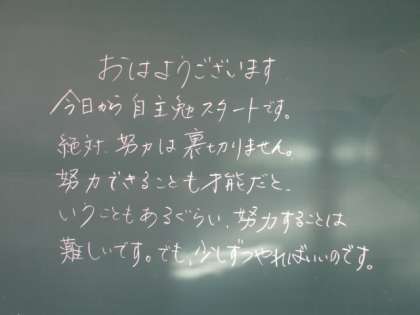 おはようございます
今日から自主勉スタートです。
絶対、努力は裏切りません。
努力できることも才能だと、
いうこともあるぐらい、努力することは
難しいです。でも、少しずつやればいいのです。